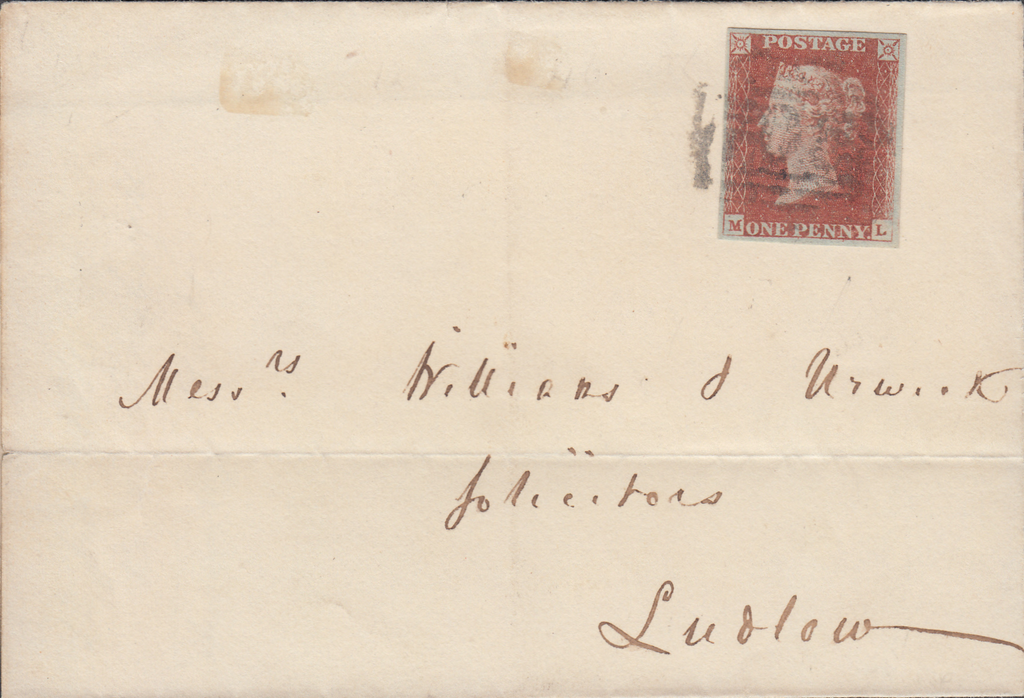 POSTAGE
M ONE PENNY. L
Mess.rs Williams & Urwick
Solicitors
Ludlow